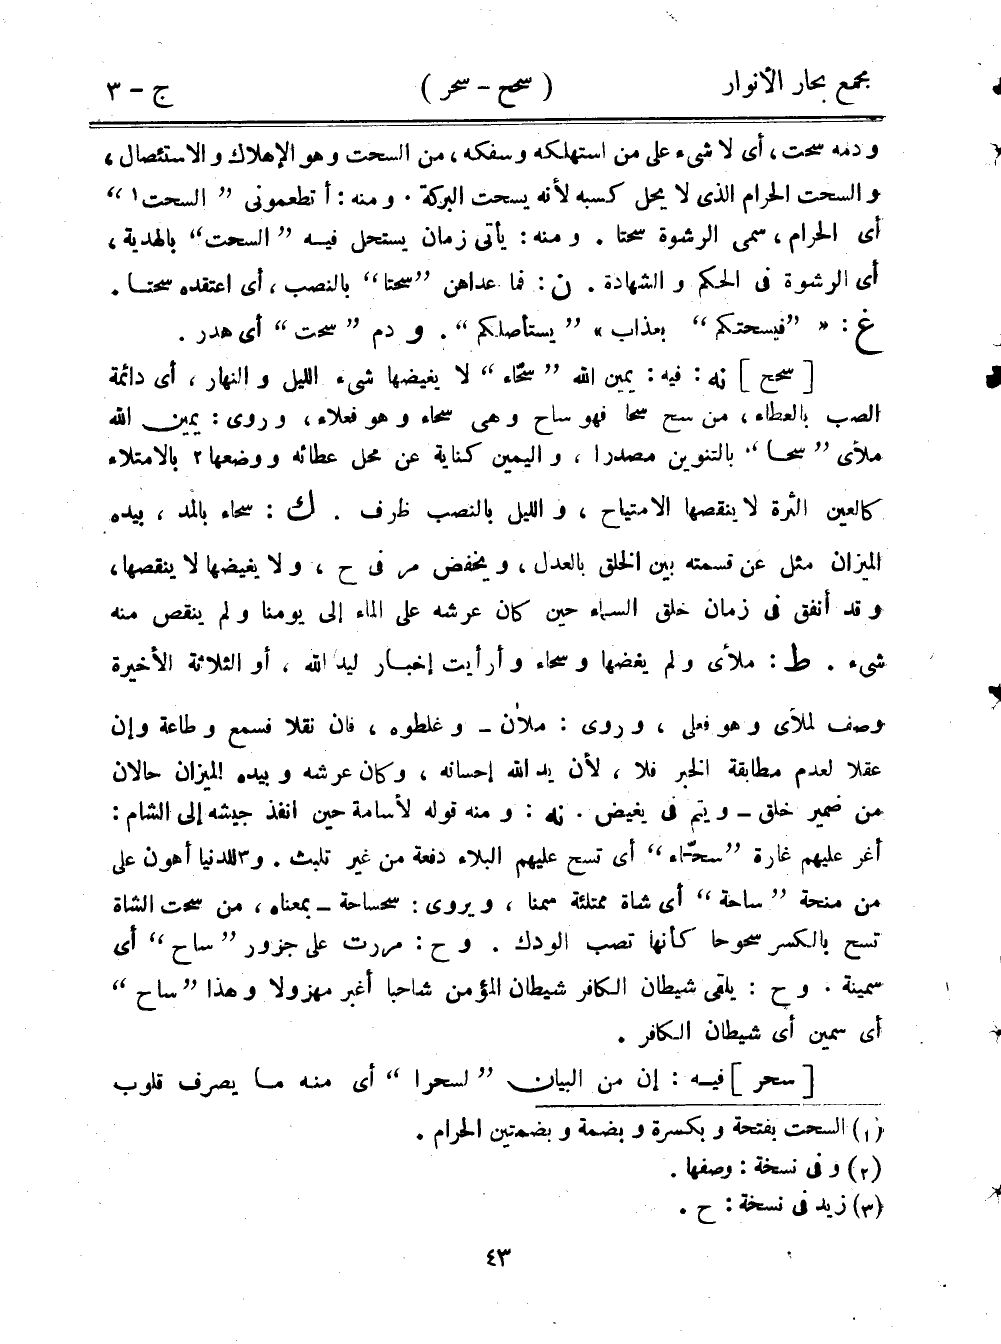 مجمع بحار الأنوار ( سحح - سحر ) ج - ٣
و دمه سحت، أى لا شىء على من استهلكه و سفكه، من السحت و هو الإهلاك و الاستئصال،
و السحت الحرام الذى لا يحل كسبه لأنه يسحت البركة . و منه: أ تطعمونى "السحت١"
أى الحرام، سمى الرشوة سحتا . و منه: يأتى زمان يستحل فيه "السحت" بالهدية،
أى الرشوة فى الحكم و الشهادة . ن: فما عداهن "سحتا" بالنصب، أى اعتقده سحتا .
غ: « "فيسحتكم" بعذاب » "يستأصلكم" . و دم "سحت" أى هدر .
[ سحح ] نه: فيه: يمين الله "سحّاء" لا يغيضها شىء الليل و النهار، أى دائمة
الصب بالعطاء، من سح سحا فهو ساح و هى سحاء و هو فعلاء، و روى: يمين الله
ملأى "سحا" بالتنوين مصدرا، و اليمين كناية عن محل عطائه و وضعها٢ بالامتلاء
كالعين الثرة لا ينقصها الامتياح، و الليل بالنصب ظرف . ك: سحاء بالمد، بيده
الميزان مثل عن قسمته بين الخلق بالعدل، و يخفض مر فى ح، و لا يغيضها لا ينقصها،
و قد أنفق فى زمان خلق السماء حين كان عرشه على الماء إلى يومنا و لم ينقص منه
شىء . ط: ملأى و لم يغضها و سحاء و أرأيت إخبار ليد الله، أو الثلاثة الأخيرة
وصف لملآى و هو فعلى، و روى: ملان - و غلطوه، فان نقلا فسمع و طاعة وإن
عقلا لعدم مطابقة الخبر فلا، لأن يد الله إحسانه، و كان عرشه و بيده الميزان حالان
من ضمير خلق - و يتم فى يغيض . نه: و منه قوله لأسامة حين انفذ جيشه إلى الشام:
أغر عليهم غارة "سحّاء" أى تسح عليهم البلاء دفعة من غير تلبث . و٣للدنيا أهون على
من منحة "ساحة" أى شاة ممتلئة سمنا، و يروى: سحساحة - بمعناه، من سحت الشاة
تسح بالكسر سحوحا كأنها تصب الودك . و ح: مررت على جزور "ساح" أى
سمينة . و ح: يلقى شيطان الكافر شيطان المؤمن شاحبا أغبر مهزولا و هذا "ساح"
أى سمين أى شيطان الكافر .
[ سحر ] فيه: إن من البيان "لسحرا" أى منه ما يصرف قلوب
(١) السحت بفتحة و بكسرة و بضمة و بضمتين الحرام .
(٢) و فى نسخة: وصفها .
(٣) زيد فى نسخة: ح .
٤٣